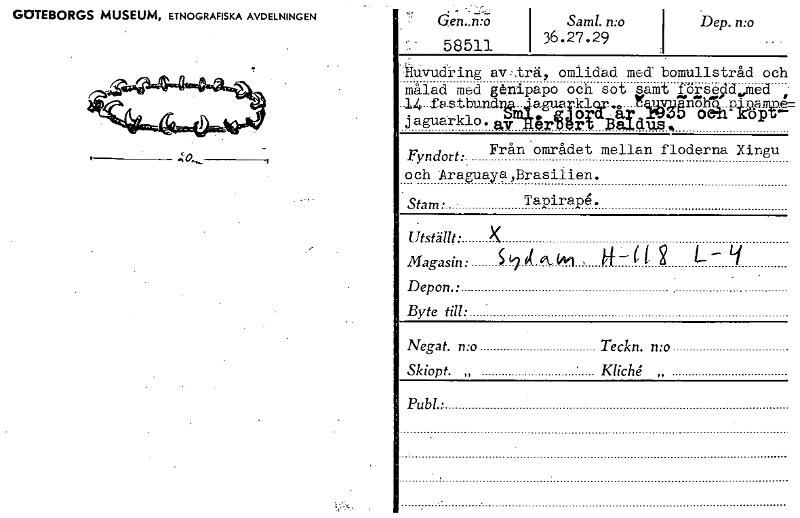 GÖTEBORGS MUSEUM, ETNOGRAFISKA AVDELNINGEN
20
Gen.n:o
58511
Saml. n:o
36.27.29
Dep. n:o
Huvudring av trä, omlidad med bomullstråd och
målad med genipapo och sot samt försedd med
14 fastbundna jaguarklor. pipampé=
jaguarklo. Sml. gjord år 1935 och köpt
av Herbert Baldus.
Fyndort: Från området mellan floderna Xingu
och Araguaya, Brasilien.
Stam: Tapirapé.
Utställt: X
Magasin: Sydam. H-118 L-4
Depon.:
Byte till:
Negat. n:o
Teckn. n:o
Skiopt. „
Kliché „
Publ.: